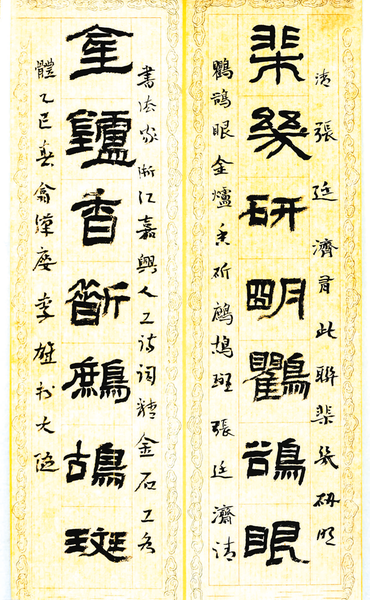 清張廷濟有此聯棐幾研明
棐幾研明鸜鵒眼
鸜鵒眼金爐香鷓鴣斑張廷濟清
書法家浙江嘉興人工詩詞精金石工各
金鑪香鷓鴣斑
體乙巳春李雄於大